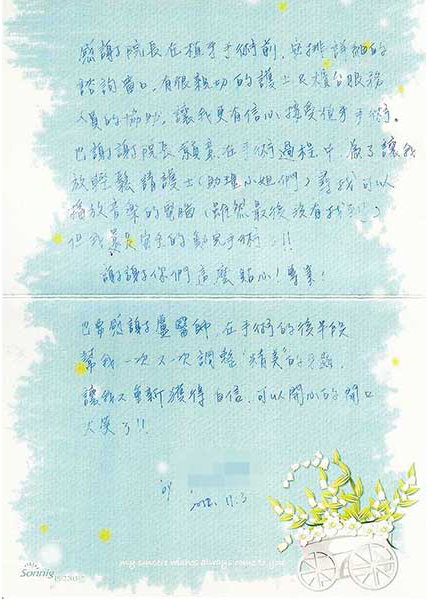 感謝院長在植牙手術前,安排詳細的
諮詢窗口,有很親切的護士及櫃台服務
人員的協助,讓我更有信心接受植牙手術。
也謝謝院長 在手術過程中,為了讓我
放輕鬆請護士(助理小姐們)尋找可以
播放音樂的電腦(雖然最後沒有找到)
但我還是安全的動完手術了!!
謝謝你們這麼貼心!專業!
也要感謝盧醫師,在手術的後半段
幫我一次又一次調整“精美”的牙齒
讓我又重新獲得自信,可以開心的開口
大笑了!!
by
2012. 11. 3
my sincere wishes always come to you
Sonnig